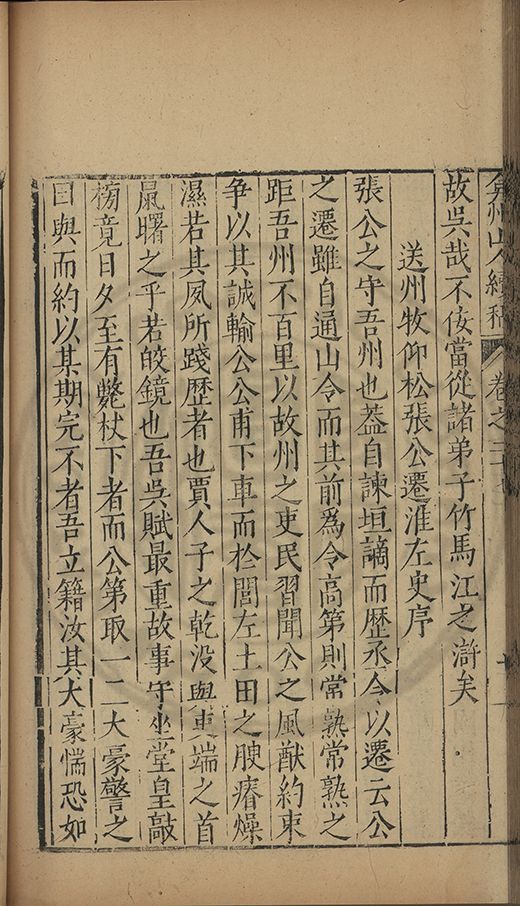 弇州山人續稿 卷之二十七
故吳哉不佞當從諸弟子竹馬江之滸矣
送州牧仰松張公遷淮左史序
張公之守吾州也蓋自諫垣謫而歷丞令以遷云公
之遷雖自通山令而其前爲令高第則常熟常熟之
距吾州不百里以故州之吏民習聞公之風猷約束
争以其誠輸公公甫下車而於閭左土田之腴瘠燥
濕若其夙所踐歷者也賈人子之乾没與吏端之首
鼠曙之乎若皎鏡也吾吳賦最重故事守坐堂皇敲
榜竟日夕至有斃杖下者而公第取一二大豪警之
曰與而約以某期完不者吾立籍汝其大豪惴恐如